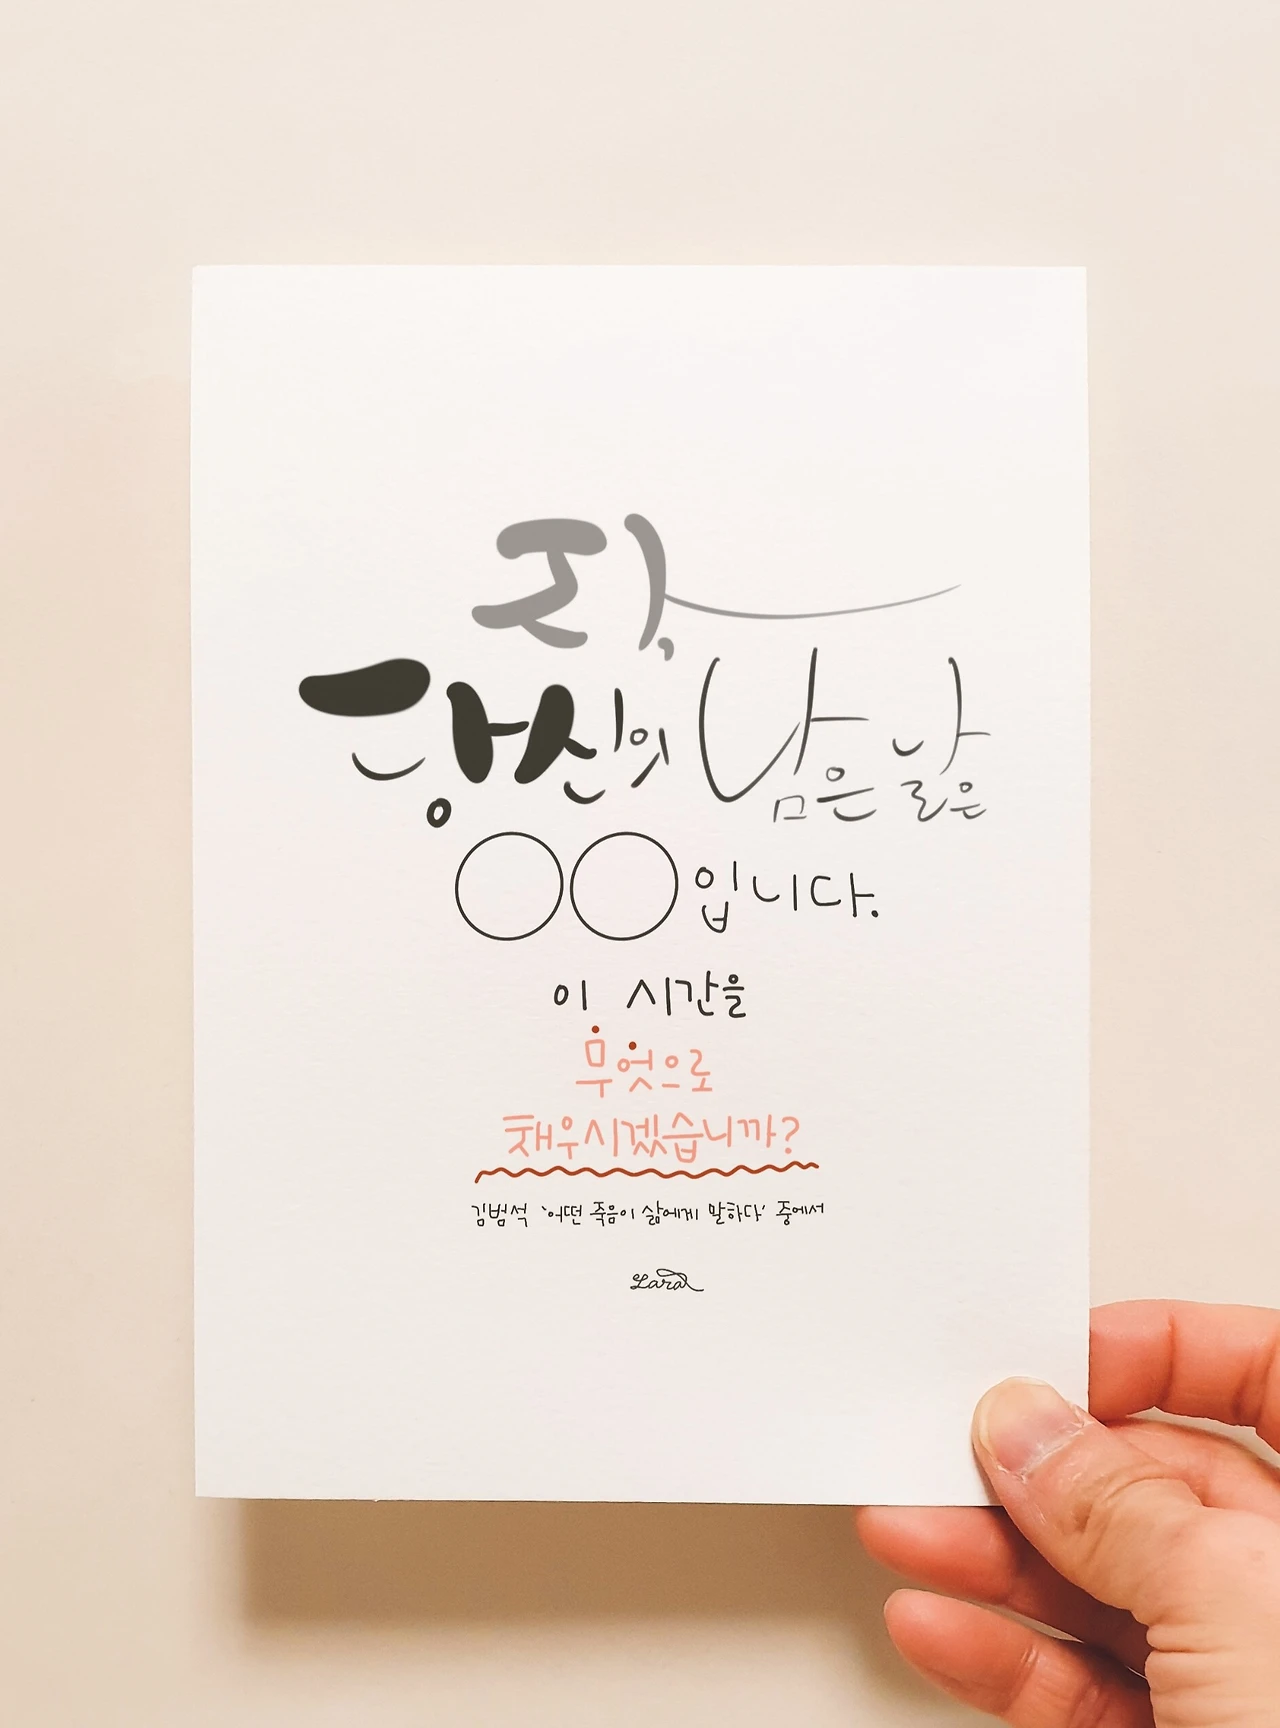 자,
당신의 남은 날은
○○입니다.
이 시간을
무엇으로
채우시겠습니까?
김범석 '어떤 죽음이 삶에게 말하다' 중에서
Lara